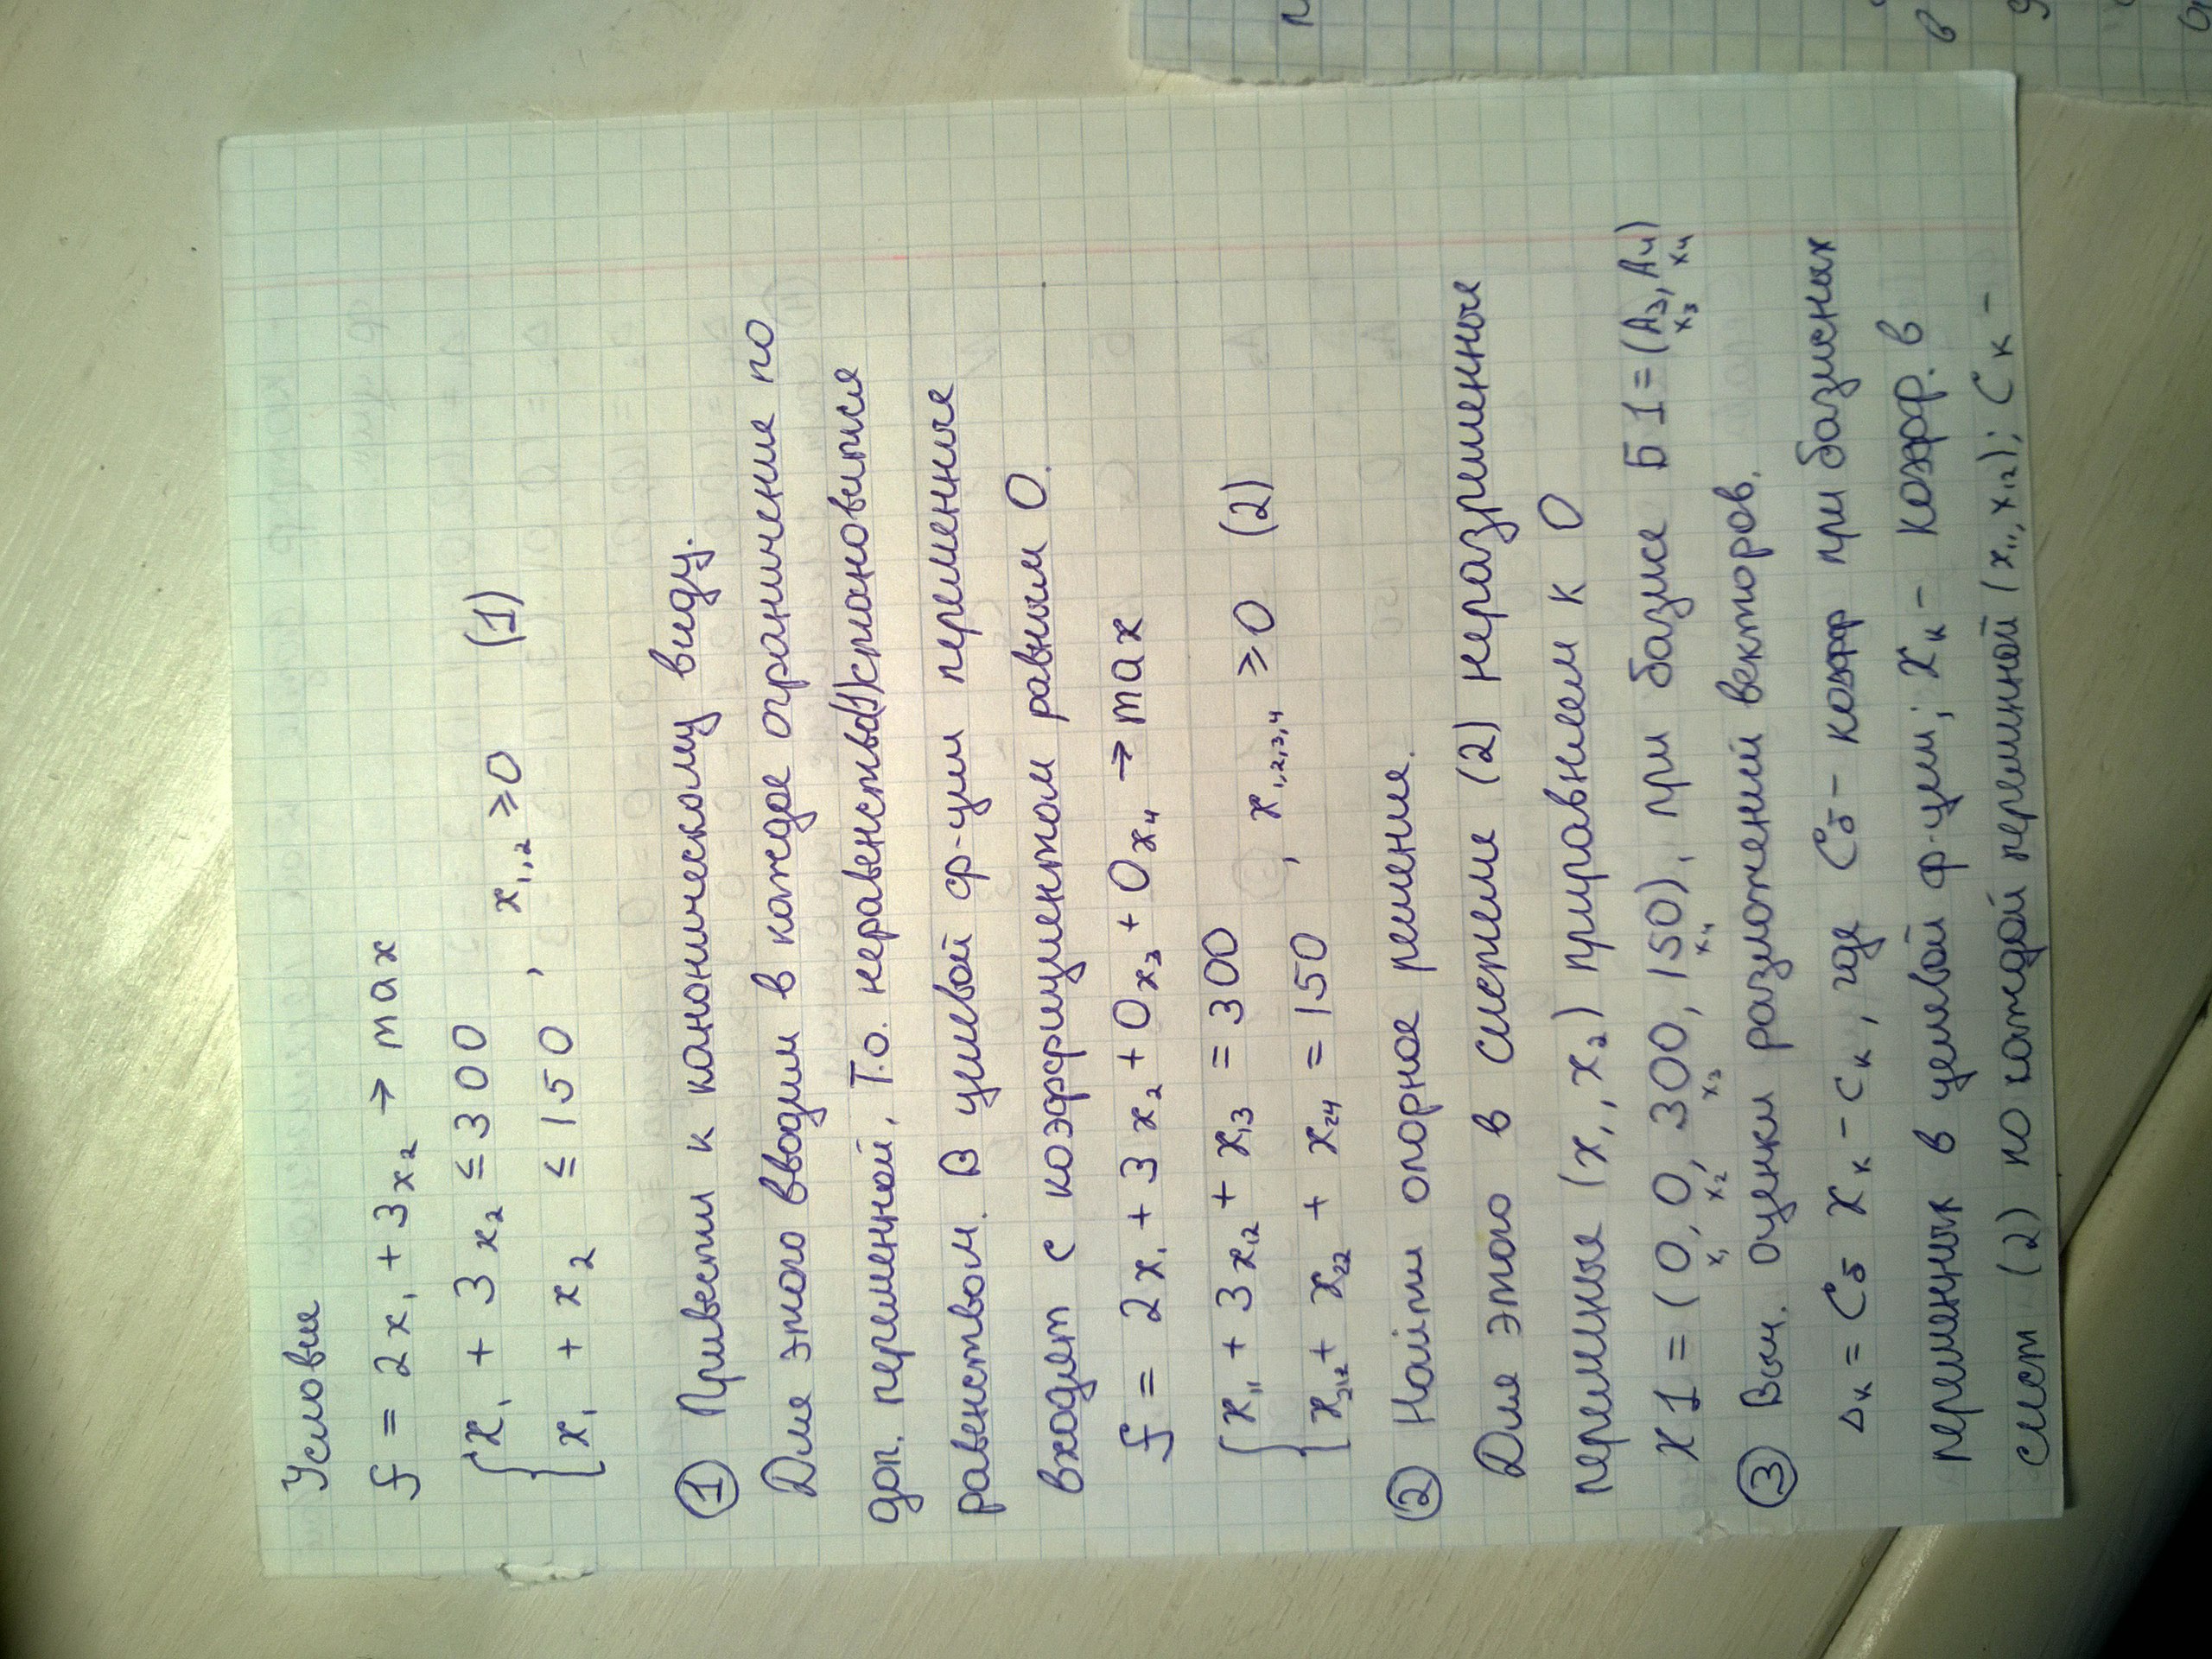 Условие
f = 2x₁ + 3x₂ → max
x₁ + 3x₂ ≤ 300
, x₁,₂ ≥ 0 (1)
x₁ + x₂ ≤ 150
① Привести к каноническому виду.
Для этого вводим в каждое ограничение по
доп. переменной. Т.о. неравенство(1)становится
равенством. В целевой ф-ции переменные
входят с коэффициентом равным 0.
f = 2x₁ + 3x₂ + 0x₃ + 0x₄ → max
x₁₁ + 3x₁₂ + x₁₃ = 300
, x₁,₂,₃,₄ ≥ 0 (2)
+ x₂₂ + x₂₄ = 150
② Найти опорное решение.
Для этого в системе (2) неразрешенные
переменые (x₁, x₂) приравняем к 0
X1 = (0, 0, 300, 150), при базисе Б1 = (A₃, A₄)
x₁ x₂ x₃ x₄ x₃ x₄
③ Выч. оценки разложений векторов.
Δₖ = Cб Xₖ - cₖ, где Cб - коэфф при базисных
переменных в целевой ф-ции; Xₖ - коэфф. в
сист (2) по каждой переменной (x₁₁, x₁₂); Cₖ -